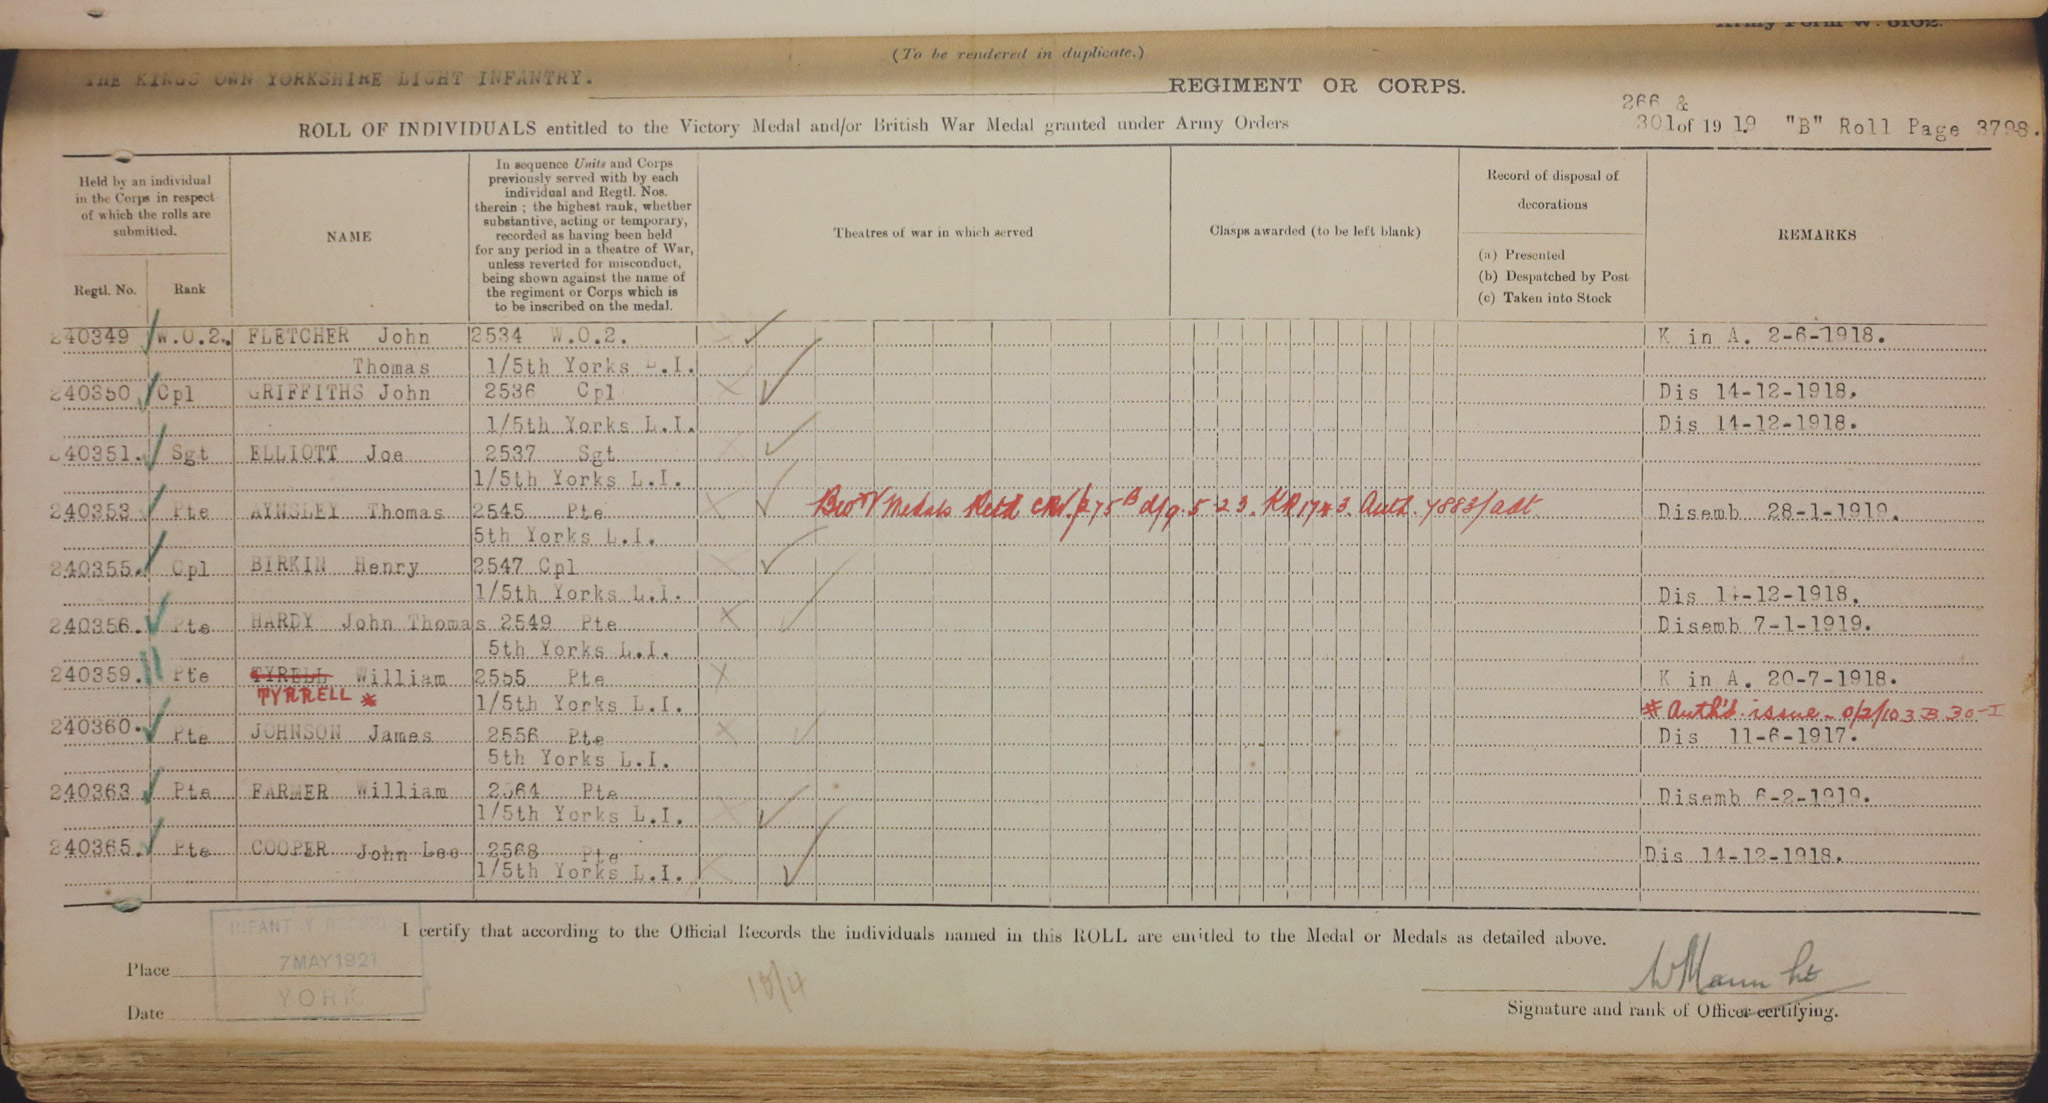 Army Form W. 5102.
(To be rendered in duplicate.)
THE KINGS OWN YORKSHIRE LIGHT INFANTRY. REGIMENT OR CORPS.
266 &
ROLL OF INDIVIDUALS entitled to the Victory Medal and/or British War Medal granted under Army Orders 301 of 1919 "B" Roll Page 3798.
Held by an individual in the Corps in respect of which the rolls are submitted.
Regtl. No. Rank
NAME
In sequence Units and Corps previously served with by each individual and Regtl. Nos. therein ; the highest rank, whether substantive, acting or temporary, recorded as having been held for any period in a theatre of War, unless reverted for misconduct, being shown against the name of the regiment or Corps which is to be inscribed on the medal.
Theatres of war in which served
Clasps awarded (to be left blank)
Record of disposal of decorations
(a) Presented
(b) Despatched by Post
(c) Taken into Stock
REMARKS
240349 W.O.2. FLETCHER John 2534 W.O.2. K in A. 2-6-1918.
Thomas 1/5th Yorks L.I.
240350 Cpl GRIFFITHS John 2536 Cpl Dis 14-12-1918.
1/5th Yorks L.I. Dis 14-12-1918.
240351. Sgt ELLIOTT Joe 2537 Sgt
1/5th Yorks L.I.
240353 Pte AYNSLEY Thomas 2545 Pte Medals Retd 5-23. KR 1743. Auth. 7883/adt Disemb 28-1-1919.
5th Yorks L.I.
240355. Cpl BIRKIN Henry 2547 Cpl
1/5th Yorks L.I. Dis 14-12-1918.
240356. Pte HARDY John Thomas 2549 Pte Disemb 7-1-1919.
5th Yorks L.I.
240359. Pte TYRELL William 2555 Pte K in A. 20-7-1918.
TYRRELL * 1/5th Yorks L.I. * Auth'd issue - 0/2/103 B 30-I
240360. Pte JOHNSON James 2556 Pte Dis 11-6-1917.
5th Yorks L.I.
240363 Pte FARMER William 2564 Pte Disemb 6-2-1919.
1/5th Yorks L.I.
240365. Pte COOPER John Lee 2568 Pte Dis 14-12-1918.
1/5th Yorks L.I.
I certify that according to the Official Records the individuals named in this ROLL are entitled to the Medal or Medals as detailed above.
INFANTRY RECORDS
7 MAY 1921
YORK
Place
Date
Signature and rank of Officer certifying.